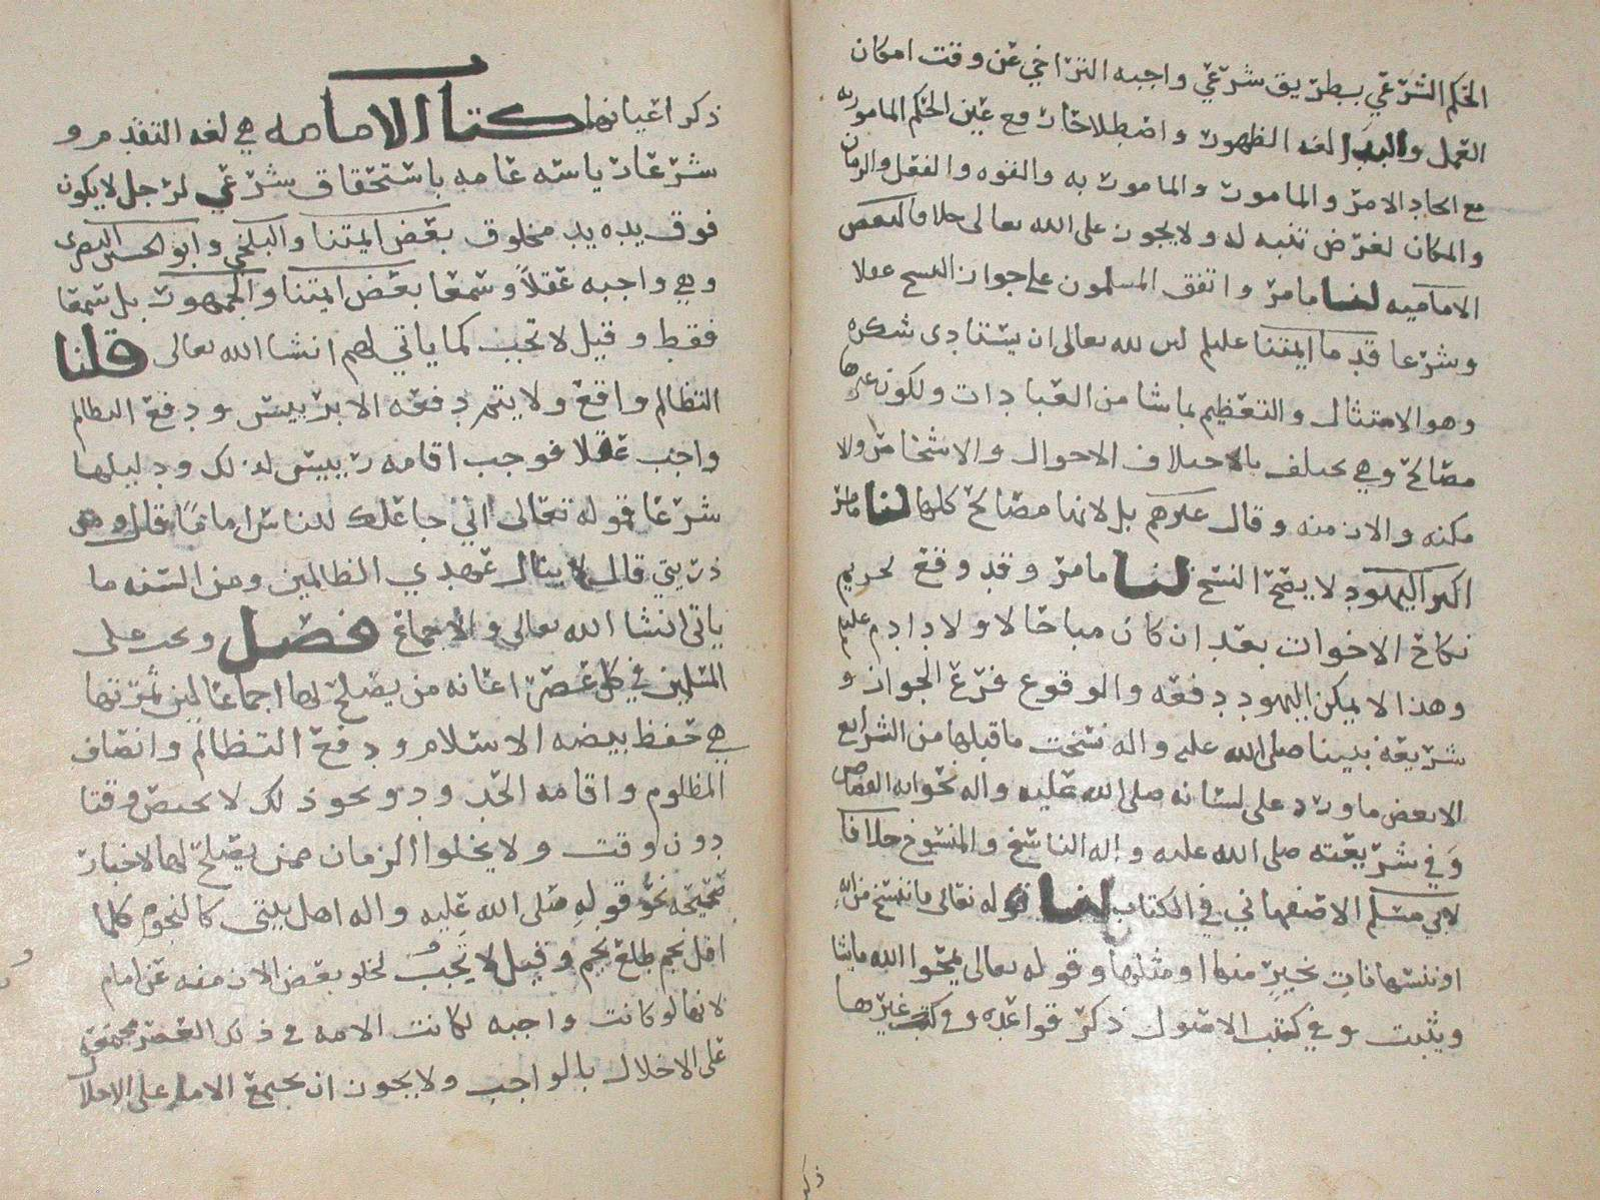 الحكم الشرعي بطريق شرعي واجبه التراخي عن وقت امكان
العمل والبدا لغه الظهور واصطلاحا رفع عين الحكم المامور به
مع اتحاد الامر والمامور والمامور به والقوه والفعل والزمان
والمكان لغرض تنبه له ولا يجوز على الله تعالى خلافا لبعض
الاماميه لنا ما مر واتفق المسلمون على جواز النسخ عقلا
وشرعا قدما ايمتنا عليلم لىں لله تعالى ان يستادى شكره
وهو الامتثال والتعظيم بما شا من العبادات ولكون غيرها
مصالح وهي تختلف بالاختلاف الاحوال والاشخاص ولا
مكنه والازمنه وقال غيرهم بل لانها مصالح كلها لنا ما مر
اكثر اليهود لا يصح النسخ لنا ما مر وقد وقع تحريم
نكاح الاخوات بعد ان كان مباحا لاولاد ادم عليلم
وهذا لا يمكن اليهود دفعه والوقوع فرع الجواز و
شريعة نبينا صلى الله عليه واله نسخت ما قبلها من الشرايع
الا بعض ما ورد على لسانه صلى الله عليه واله نحو ايه القصاص
وفي شريعته صلى الله عليه واله الناسخ والمنسوخ خلافا
لابي مسلم الاصفهاني في الكتاب لنا قوله تعالى ما ننسخ من ايه
او ننسها نات بخير منها او مثلها وقوله تعالى يمحوا الله ما يشا
ويثبت وفي كتب الاصول ذكر قواعده وفي كتب غيرها
ذكر
ذكر اعيانها كتاب الامامه هي لغه التقدم و
شرعا رياسه عامه باستحقاق شرعي لرجل لا يكون
فوق يده يد مخلوق بعض ايمتنا والبلخي وابو الحسين البصرى
وهي واجبه عقلاً وسمعا بعض ايمتنا والجمهور بل سمعا
فقط وقيل لا تجب كما ياتي لهم انشا الله تعالى قلنا
التظالم واقع ولا يتم دفعه الا برييس ودفع التظالم
واجب عقلا فوجب اقامه رييس لذلك ودليلها
شرعا قوله تعالى اني جاعلك للناس اماما قال ومن
ذريتي قال لا ينال عهدي الظالمين ومن السنه ما
ياتي انشا الله تعالى والاجماع فصل ويجب على
المسلمين في كل عصر اعانه من يصلح لها اجماعا لين ثمرتها
هي حفظ بيضه الاسلام ودفع التظالم وانصاف
المظلوم واقامه الحدود ونحو ذلك لا يختص وقتا
دون وقت ولا يخلوا الزمان ممن يصلح لها لاخبار
صحيحه نحو قوله صلى الله عليه واله اهل بيتي كالنجوم كلما
افل نجم طلع نجم وقيل لا تجب لخلو بعض الازمنه عن امام
لانها لو كانت واجبه لكانت الامه في ذلك العصر مجمعه
على الاخلال بالواجب ولا يجوز ان تجمع الامه على الاخلا